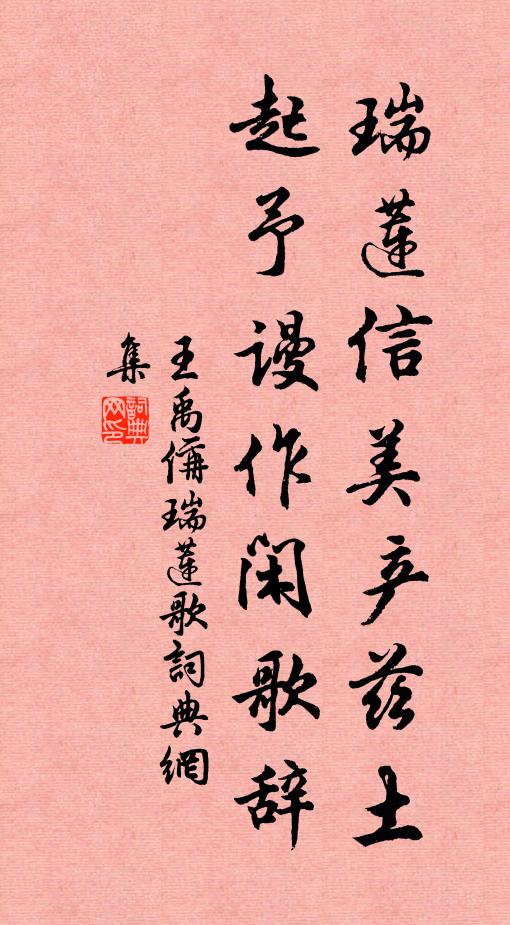 瑞蓮信美产兹土
起予谩作闲歌辞
王禹偁瑞蓮歌詞典網
集
詞典
网印